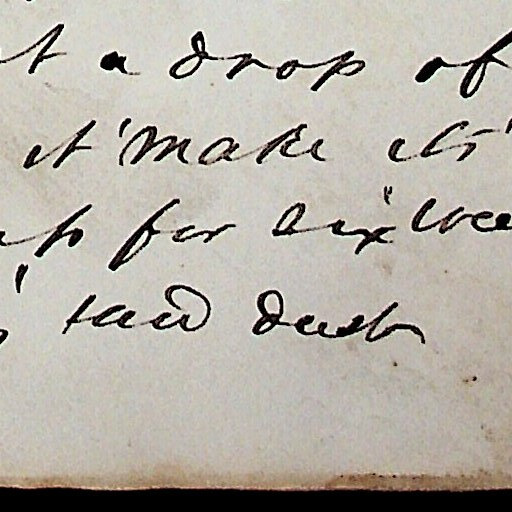 t a drop of
it 'make its'
up for six wee
saw dust